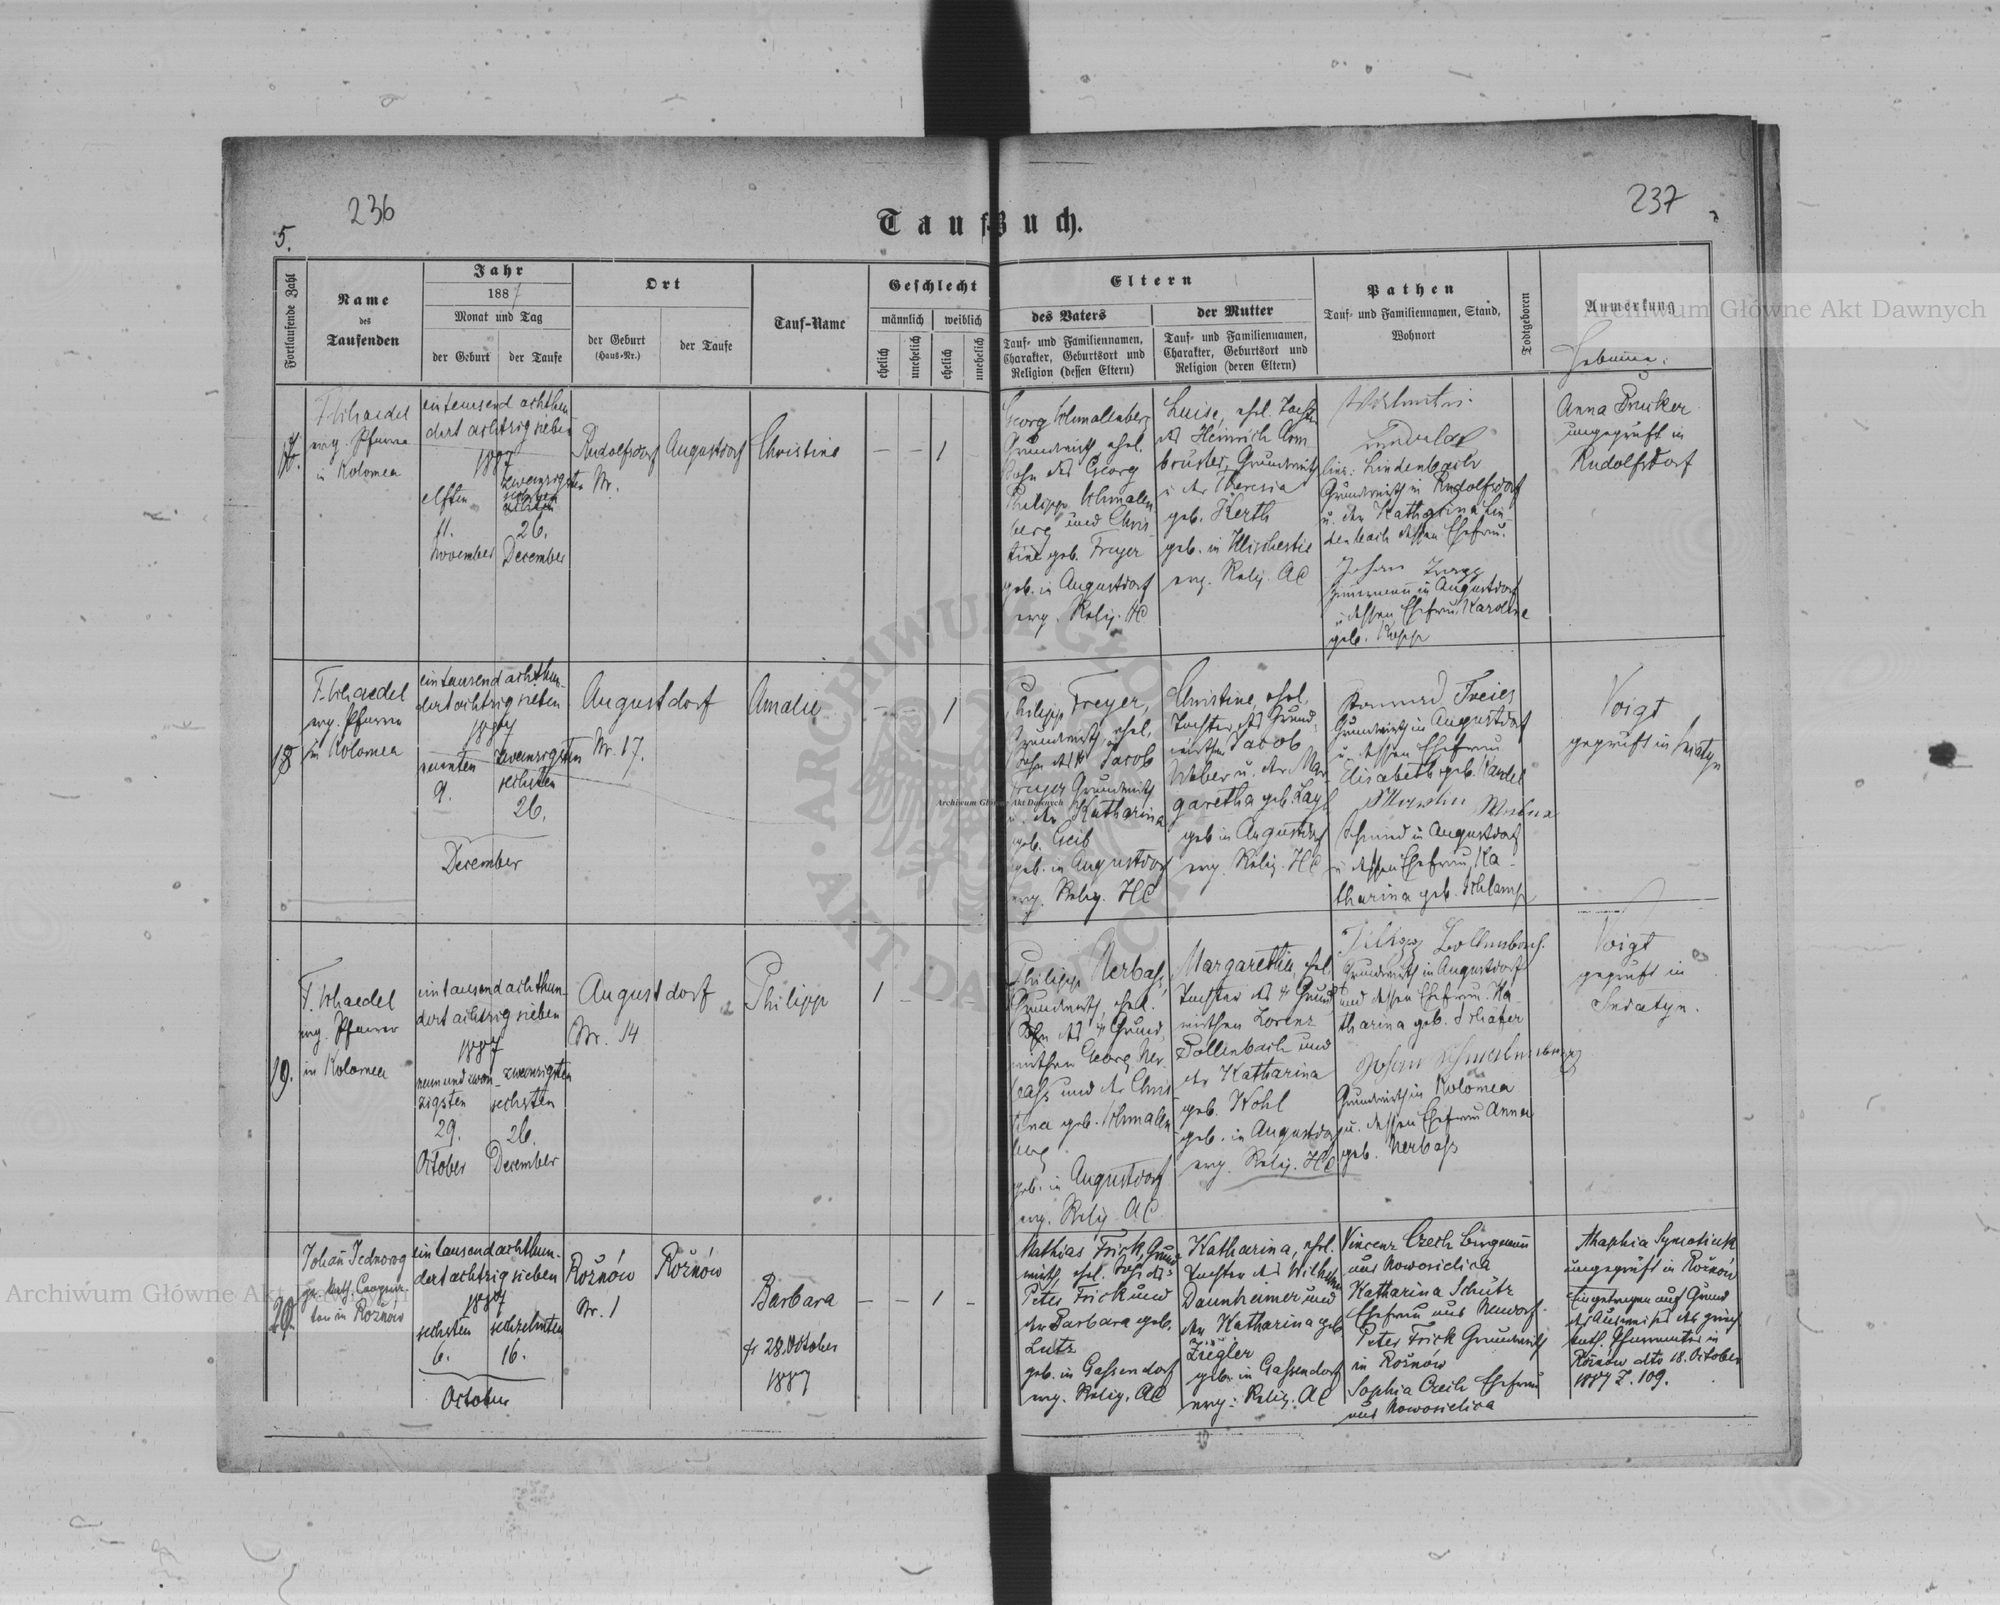 236
237
5.
Tauf-Buch.
Fortlaufende Zahl
Name
des
Taufenden
Jahr
1887
Monat und Tag
der Geburt
der Taufe
Ort
der Geburt
(Haus-Nr.)
der Taufe
Tauf-Name
Geschlecht
männlich
weiblich
ehelich
unehelich
ehelich
unehelich
Eltern
des Vaters
Tauf- und Familiennamen,
Charakter, Geburtsort und
Religion (dessen Eltern)
der Mutter
Tauf- und Familiennamen,
Charakter, Geburtsort und
Religion (deren Eltern)
Pathen
Tauf- und Familiennamen, Stand,
Wohnort
Todtgeboren
Anmerkung
Hebamme:
17.
evg. Pfarrer
in Kolomea
eintausend achthun-
dert achtzig sieben
1887
elften
11.
November
zwanzigsten
sechsten
26.
December
Rudolfsdorf
Nr.
Augustdorf
Christine
— — 1
Georg Schmallenberg
Grundwirth, ehel.
Sohn des Georg
Philipp Schmallen
berg und Chris-
tine geb. Freyer
geb. in Augustdorf
evg. Relig. HC
Luise, ehel. Tochter
des Heinrich Arm
bruster, Grundwirth
u. der Theresia
geb. Kerth
evg. Relig. AC
Lindenbach
Grundwirth in Rudolfsdorf
u. der Katharina Lin-
denbach dessen Ehefrau.
Johan
Zimmermann in Augustdorf
u. dessen Ehefrau Karoline
geb.
Anna Drucker
ungeprüft in
Rudolfsdorf
18
evg. Pfarrer
in Kolomea
eintausend achthun-
dert achtzig sieben
1887
neunten
9.
zwanzigsten
sechsten
26.
December
Augustdorf
Nr. 17.
Amalie
— — 1
Philipp Freyer,
Grundwirth, ehel.
Sohn des Jacob
Freyer Grundwirth
u. der Katharina
geb. Geib
geb. in Augustdorf
evg. Relig. HC
Christine, ehel.
Tochter des Grund-
wirthen Jacob
Weber u. der Mar-
garetha geb. Layh
geb in Augustdorf
evg. Relig. HC
Grundwirth in Augustdorf
u. dessen Ehefrau
Elisabeth geb. Kandel
Schmied in Augustdorf
u dessen Ehefrau Ka-
tharina geb. Schlamp
Voigt
geprüft in Sniatyn
19.
evg. Pfarrer
in Kolomea
eintausend achthun-
dert achtzig sieben
1887
neun und zwan-
zigsten
29.
October
zwanzigsten
sechsten
26.
December
Augustdorf
Nr. 14
Philipp
1 — — —
Philipp Nerbass,
Grundwirth, ehel.
Sohn des † Grund-
wirthen Georg Ner-
bass und der Chris
tina geb. Schmallen
berg
geb. in Augustdorf
evg. Relig. AC
Margaretha, ehel.
Tochter des † Grund
wirthen Lorenz
Bollenbach und
der Katharina
geb. Kohl
geb. in Augustdorf
evg. Relig. HC
Filipp Bollenbach.
Grundwirth in Augustdorf
und dessen Ehefrau Ka-
tharina geb. Schäfer
Johan Schmalenberg
Grundwirth in Kolomea
u. dessen Ehefrau Anna
geb. Nerbass
Voigt
geprüft in
Sniatyn.
20.
Johan
in Rožnów
eintausend achthun-
dert achtzig sieben
1887
sechsten
6.
sechzehnten
16.
October
Rožnów
Nr. 1
Rožnów
Barbara
28. October
1887
— — 1 -
Mathias Frick, Grund
wirth, ehel. Sohn des
Peter Frick und
der Barbara geb.
Lutz
geb. in Gassendorf
evg. Relig. AC
Katharina, ehel.
Tochter des Wilhelm
Daunheimer und
der Katharina geb
Ziegler
geb. in Gassendorf
evg. Relig. AC
Vincenz Czech Bergmann
aus Nowosielica
Katharina Schütz
Ehefrau aus Neudorf.
Peter Frick Grundwirth
in Rožnów
Sophia Czech Ehefrau
aus Nowosielica
ungeprüft in Rožnów
Eingetragen auf Grund
des Ausweises des griech
kath. Pfarramtes in
Rožnów dto 18. October
1887 Z. 109.
Archiwum Główne Akt Dawnych
Archiwum Główne Akt Dawnych
Archiwum Główne Akt Dawnych
ARCHIWUM GŁÓWNE AKT DAWNYCH